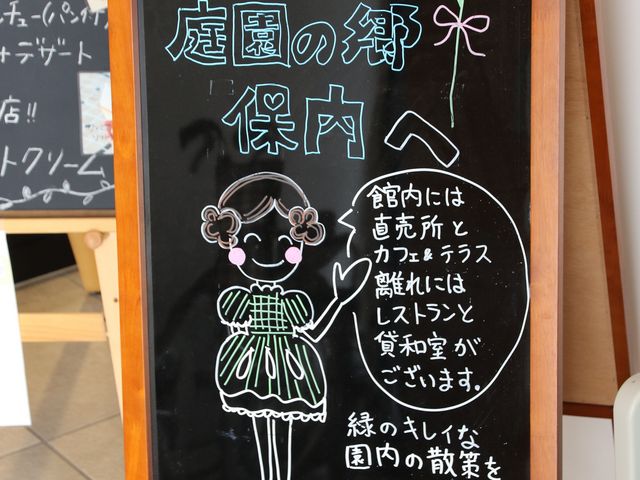 庭園の郷
保内へ
館内には
直売所と
カフェ&テラス
離れには
レストランと
貸和室が
ございます。
緑のキレイな
園内の散策を
チュー(パン付
+デザート
店!!
トクリーム